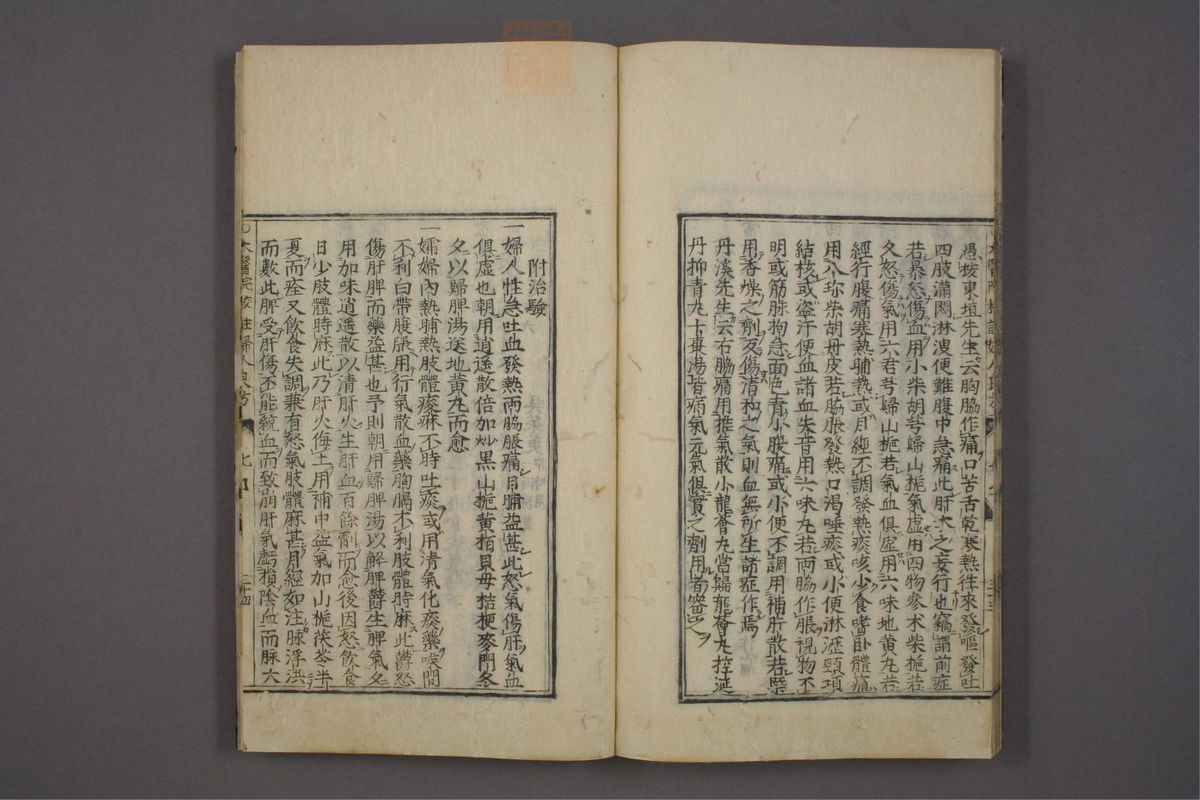 愚按東垣先生云胸脇作痛口苦舌乾寒熱往來發嘔發吐
四肢滿悶淋溲便難腹中急痛此肝木之妄行也竊謂前症
若暴怒傷血用小柴胡芎歸山梔氣虛用四物參朮柴梔若
久怒傷氣用六君芎歸山梔若氣血俱虛用六味地黃丸若
經行腹痛寒熱晡熱或月經不調發熱痰咳少食嗜臥體痛
用八珍柴胡丹皮若脇脹發熱口渴唾痰或小便淋瀝頸項
結核或盜汗便血諸血失音用六味丸若兩脇作脹視物不
明或筋脉拘急面色青小腹痛或小便不調用補肝散若槩
用香燥之劑反傷清和之氣則血無所生諸症作焉
丹溪先生云右脇痛用推氣散小龍薈丸當歸龍薈丸控涎
丹抑青丸十棗湯皆病氣元氣俱實之劑用者審之
三十三
附治驗
一婦人性急吐血發熱兩脇脹痛日晡益甚此怒氣傷肝氣血
俱虛也朝用逍遙散倍加炒黑山梔黃栢貝母桔梗麥門冬
夕以歸脾湯送地黃丸而愈
一孀婦內熱晡熱肢體痠麻不時吐痰或用清氣化痰藥喉間
不利白帶腹脹用行氣散血藥胸膈不利肢體時麻此鬱怒
傷肝脾而藥益甚也予則朝用歸脾湯以解脾鬱生脾氣夕
用加味逍遙散以清肝火生肝血百餘劑而愈後因怒飲食
日少肢體時麻此乃肝火侮土用補中益氣加山梔茯苓半
夏而痊又飲食失調兼有怒氣肢體麻甚月經如注脉浮洪
而數此脾受肝傷不能統血而致崩肝氣虧損陰血而脉大
太醫院校註婦人良方
三十四